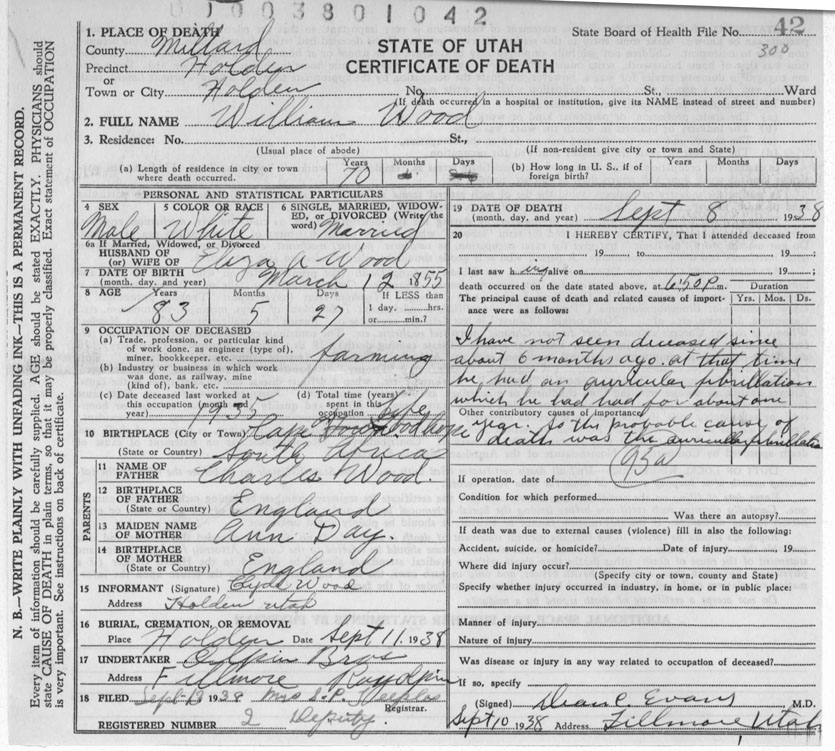 0003801042
1. PLACE OF DEATH
County Millard
Precinct Holden
or
Town or City Holden
STATE OF UTAH
CERTIFICATE OF DEATH
State Board of Health File No. 42
300
No. St., Ward
(If death occurred in a hospital or institution, give its NAME instead of street and number)
2. FULL NAME William Wood
3. Residence: No. St.,
(Usual place of abode) (If non-resident give city or town and State)
(a) Length of residence in city or town where death occurred. Years 70 Months Days
(b) How long in U. S., if of foreign birth? Years Months Days
PERSONAL AND STATISTICAL PARTICULARS
4 SEX Male
5 COLOR OR RACE White
6 SINGLE, MARRIED, WIDOWED, or DIVORCED (Write the word) Married
6a If Married, Widowed, or Divorced
HUSBAND OF
(or) WIFE OF Eliza A Wood
7 DATE OF BIRTH
(month, day, and year) March 12 1855
8 AGE Years 83 Months 5 Days 27 If LESS than 1 day, hrs. or min.?
9 OCCUPATION OF DECEASED
(a) Trade, profession, or particular kind of work done, as engineer (type of), miner, bookkeeper, etc. farming
(b) Industry or business in which work was done, as railway, mine (kind of), bank, etc.
(c) Date deceased last worked at this occupation (month and year) 1935
(d) Total time (years) spent in this occupation Life
10 BIRTHPLACE (City or Town) Cape Town Good hope
(State or Country) South Africa
PARENTS
11 NAME OF FATHER Charles Wood.
12 BIRTHPLACE OF FATHER
(State or Country) England
13 MAIDEN NAME OF MOTHER Ann Day.
14 BIRTHPLACE OF MOTHER
(State or Country) England
15 INFORMANT (Signature) Clyde Wood
Address Holden Utah
16 BURIAL, CREMATION, OR REMOVAL
Place Holden Date Sept 11, 1938
17 UNDERTAKER Olpin Bros
Address Fillmore Ray Olpin
18 FILED Sept 1938 Mrs S. P. Registrar.
REGISTERED NUMBER 2 Deputy.
19 DATE OF DEATH
(month, day, and year) Sept 8 1938
20 I HEREBY CERTIFY, That I attended deceased from
, 19 , to , 19 ;
I last saw h im alive on , 19 ;
death occurred on the date stated above, at 6:50 P.m.
The principal cause of death and related causes of importance were as follows:
Duration
Yrs. Mos. Ds.
I have not seen deceased since
about 6 months ago. at that time
he had an auricular fibrillation
which he had had for about one
Other contributory causes of importance
year. So the probable cause of
death was the auricular fibrillation
93a
If operation, date of
Condition for which performed
Was there an autopsy?
If death was due to external causes (violence) fill in also the following:
Accident, suicide, or homicide? Date of injury , 19
Where did injury occur?
(Specify city or town, county and State)
Specify whether injury occurred in industry, in home, or in public place:
Manner of injury
Nature of injury
Was disease or injury in any way related to occupation of deceased?
If so, specify
(Signed) Dean C. Evans M.D.
Sept 10 1938 Address Fillmore Utah
N. B.—WRITE PLAINLY WITH UNFADING INK—THIS IS A PERMANENT RECORD.
Every item of information should be carefully supplied. AGE should be stated EXACTLY. PHYSICIANS should
state CAUSE OF DEATH in plain terms, so that it may be properly classified. Exact statement of OCCUPATION
is very important. See instructions on back of certificate.